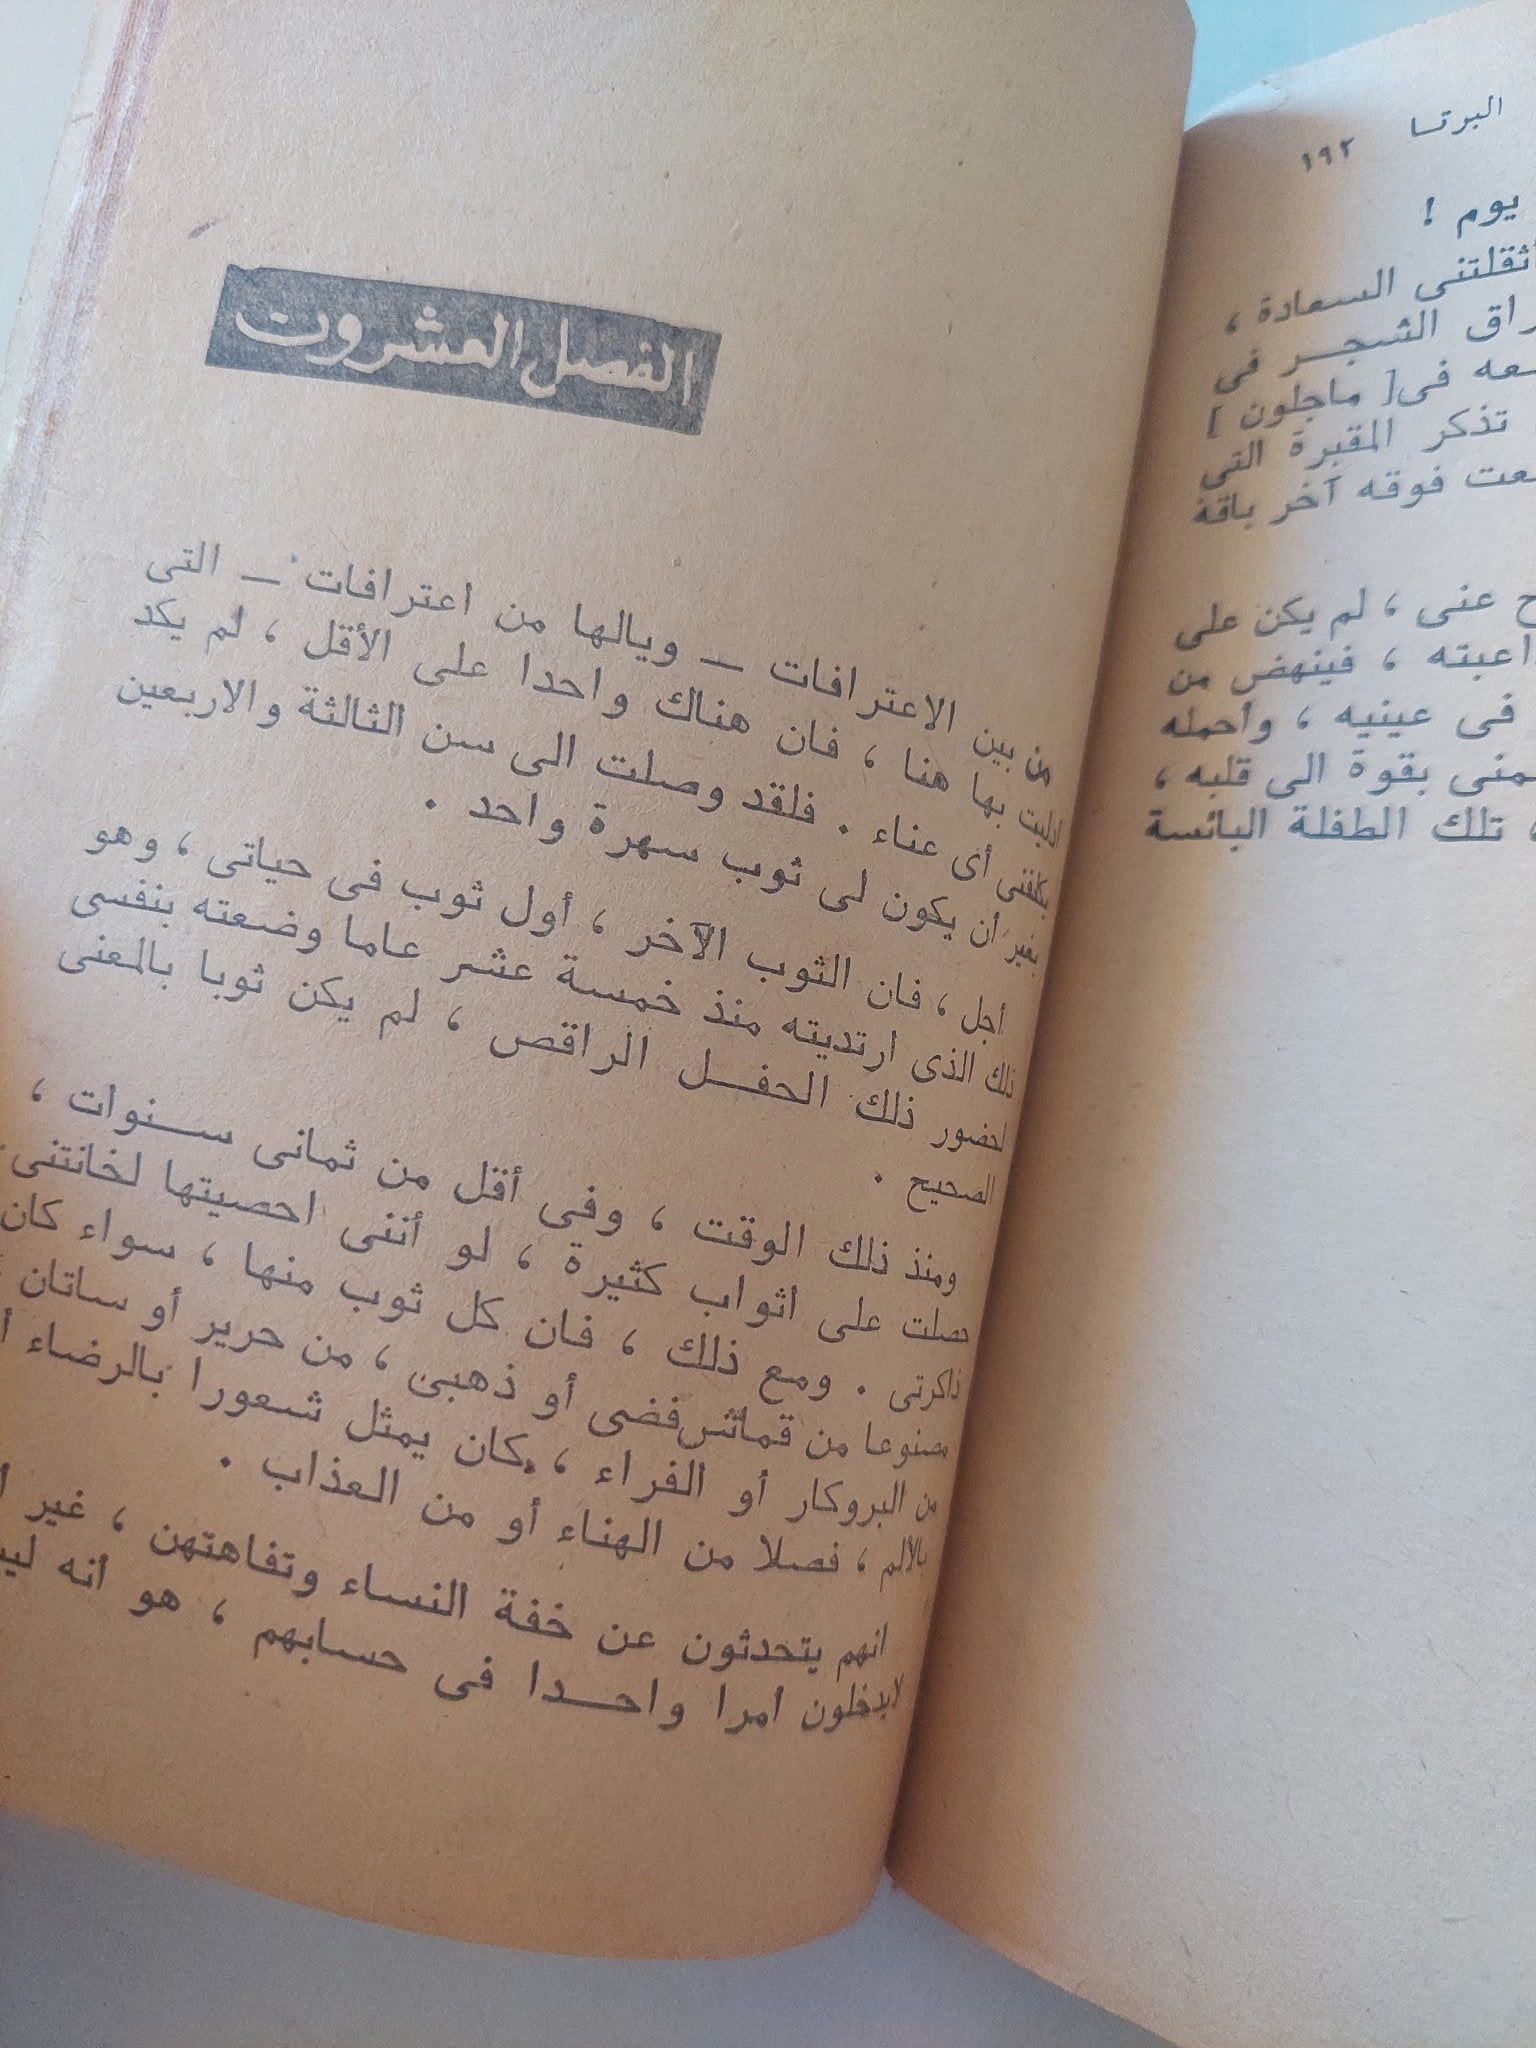 البرتسا ١٩٢
يوم !
أثقلتنى السعادة ،
راق الشجر فى
ـعه فى [ ماجلون ]
تذكر المقبرة التى
ـعت فوقه آخر باقة
ح عنى ، لم يكن على
اعبته ، فينهض من
فى عينيه ، وأحمله
ـمنى بقوة الى قلبه ،
، تلك الطفلة البائسة
الفصل العشرون
من بين الاعترافات – ويالها من اعترافات – التى
أدليت بها هنا ، فان هناك واحدا على الأقل ، لم يكد
يكلفنى أى عناء . فلقد وصلت الى سن الثالثة والاربعين
بغير أن يكون لى ثوب سهرة واحد .
أجل ، فان الثوب الآخر ، أول ثوب فى حياتى ، وهو
ذلك الذى ارتديته منذ خمسة عشر عاما وضعته بنفسى
لحضور ذلك الحفل الراقص ، لم يكن ثوبا بالمعنى
الصحيح .
ومنذ ذلك الوقت ، وفى أقل من ثمانى سنوات ،
حصلت على اثواب كثيرة ، لو أننى احصيتها لخانتنى
ذاكرتى . ومع ذلك ، فان كل ثوب منها ، سواء كان
مصنوعا من قماش فضى أو ذهبى ، من حرير أو ساتان
من البروكار أو الفراء ، كان يمثل شعورا بالرضاء أ
بالألم ، فصلا من الهناء أو من العذاب .
انهم يتحدثون عن خفة النساء وتفاهتهن ، غير أ
لايدخلون أمرا واحدا فى حسابهم ، هو أنه ليـ